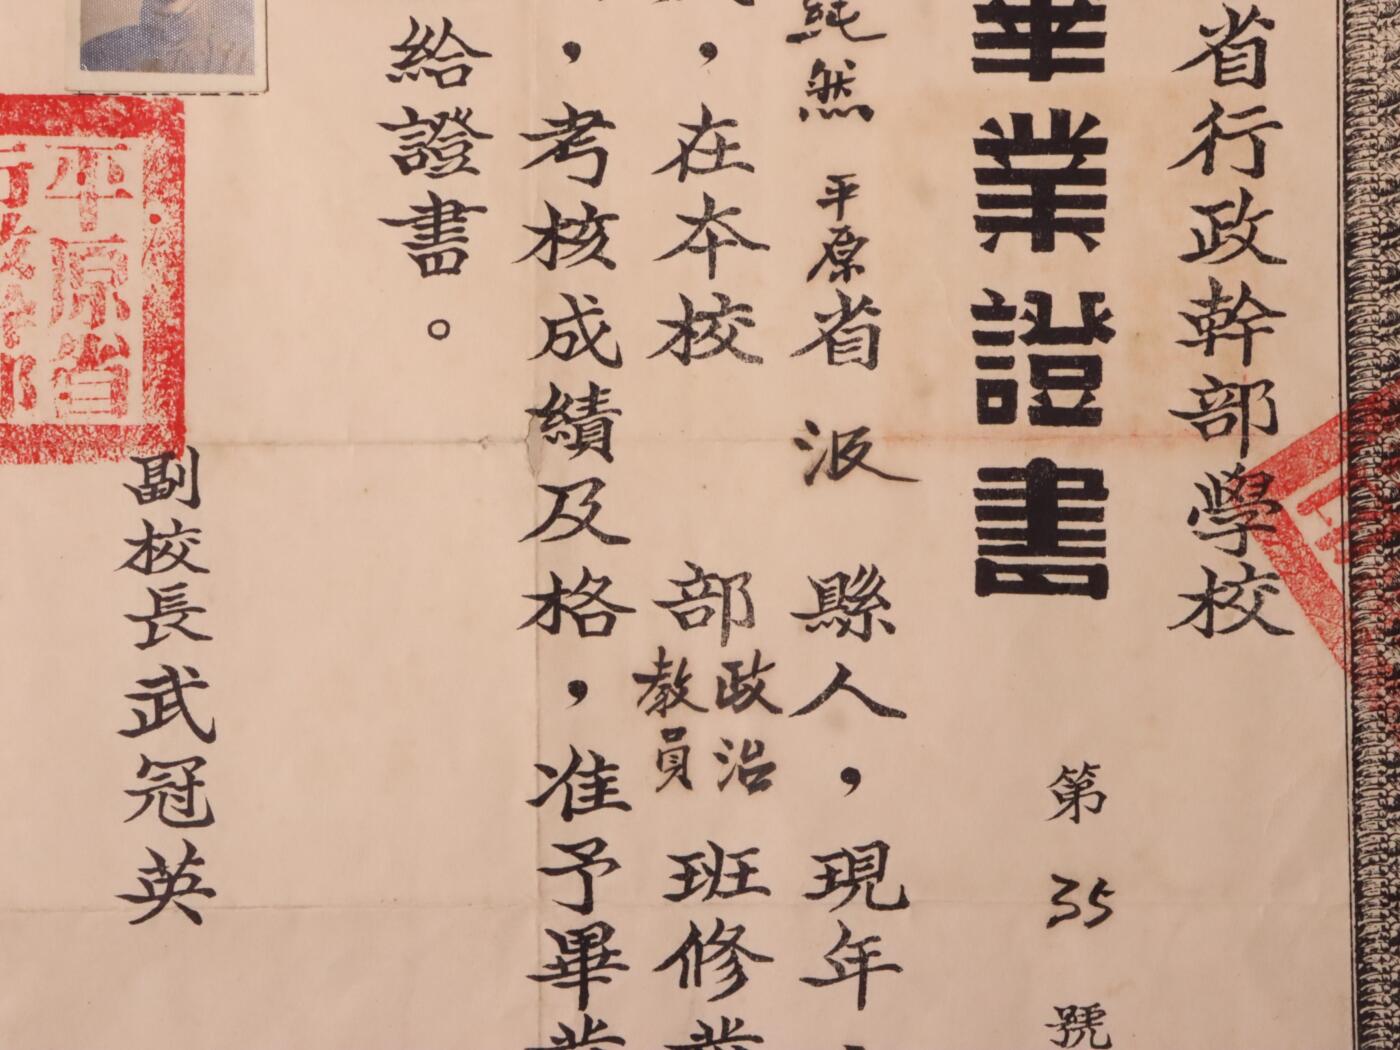 省行政幹部學校
畢業證書
第35號
純然 平原省 汲 縣人，現年
，在本校 部 政治教員 班修業
，考核成績及格，准予畢業
給證書。
副校長武冠英
平原省
行政幹部